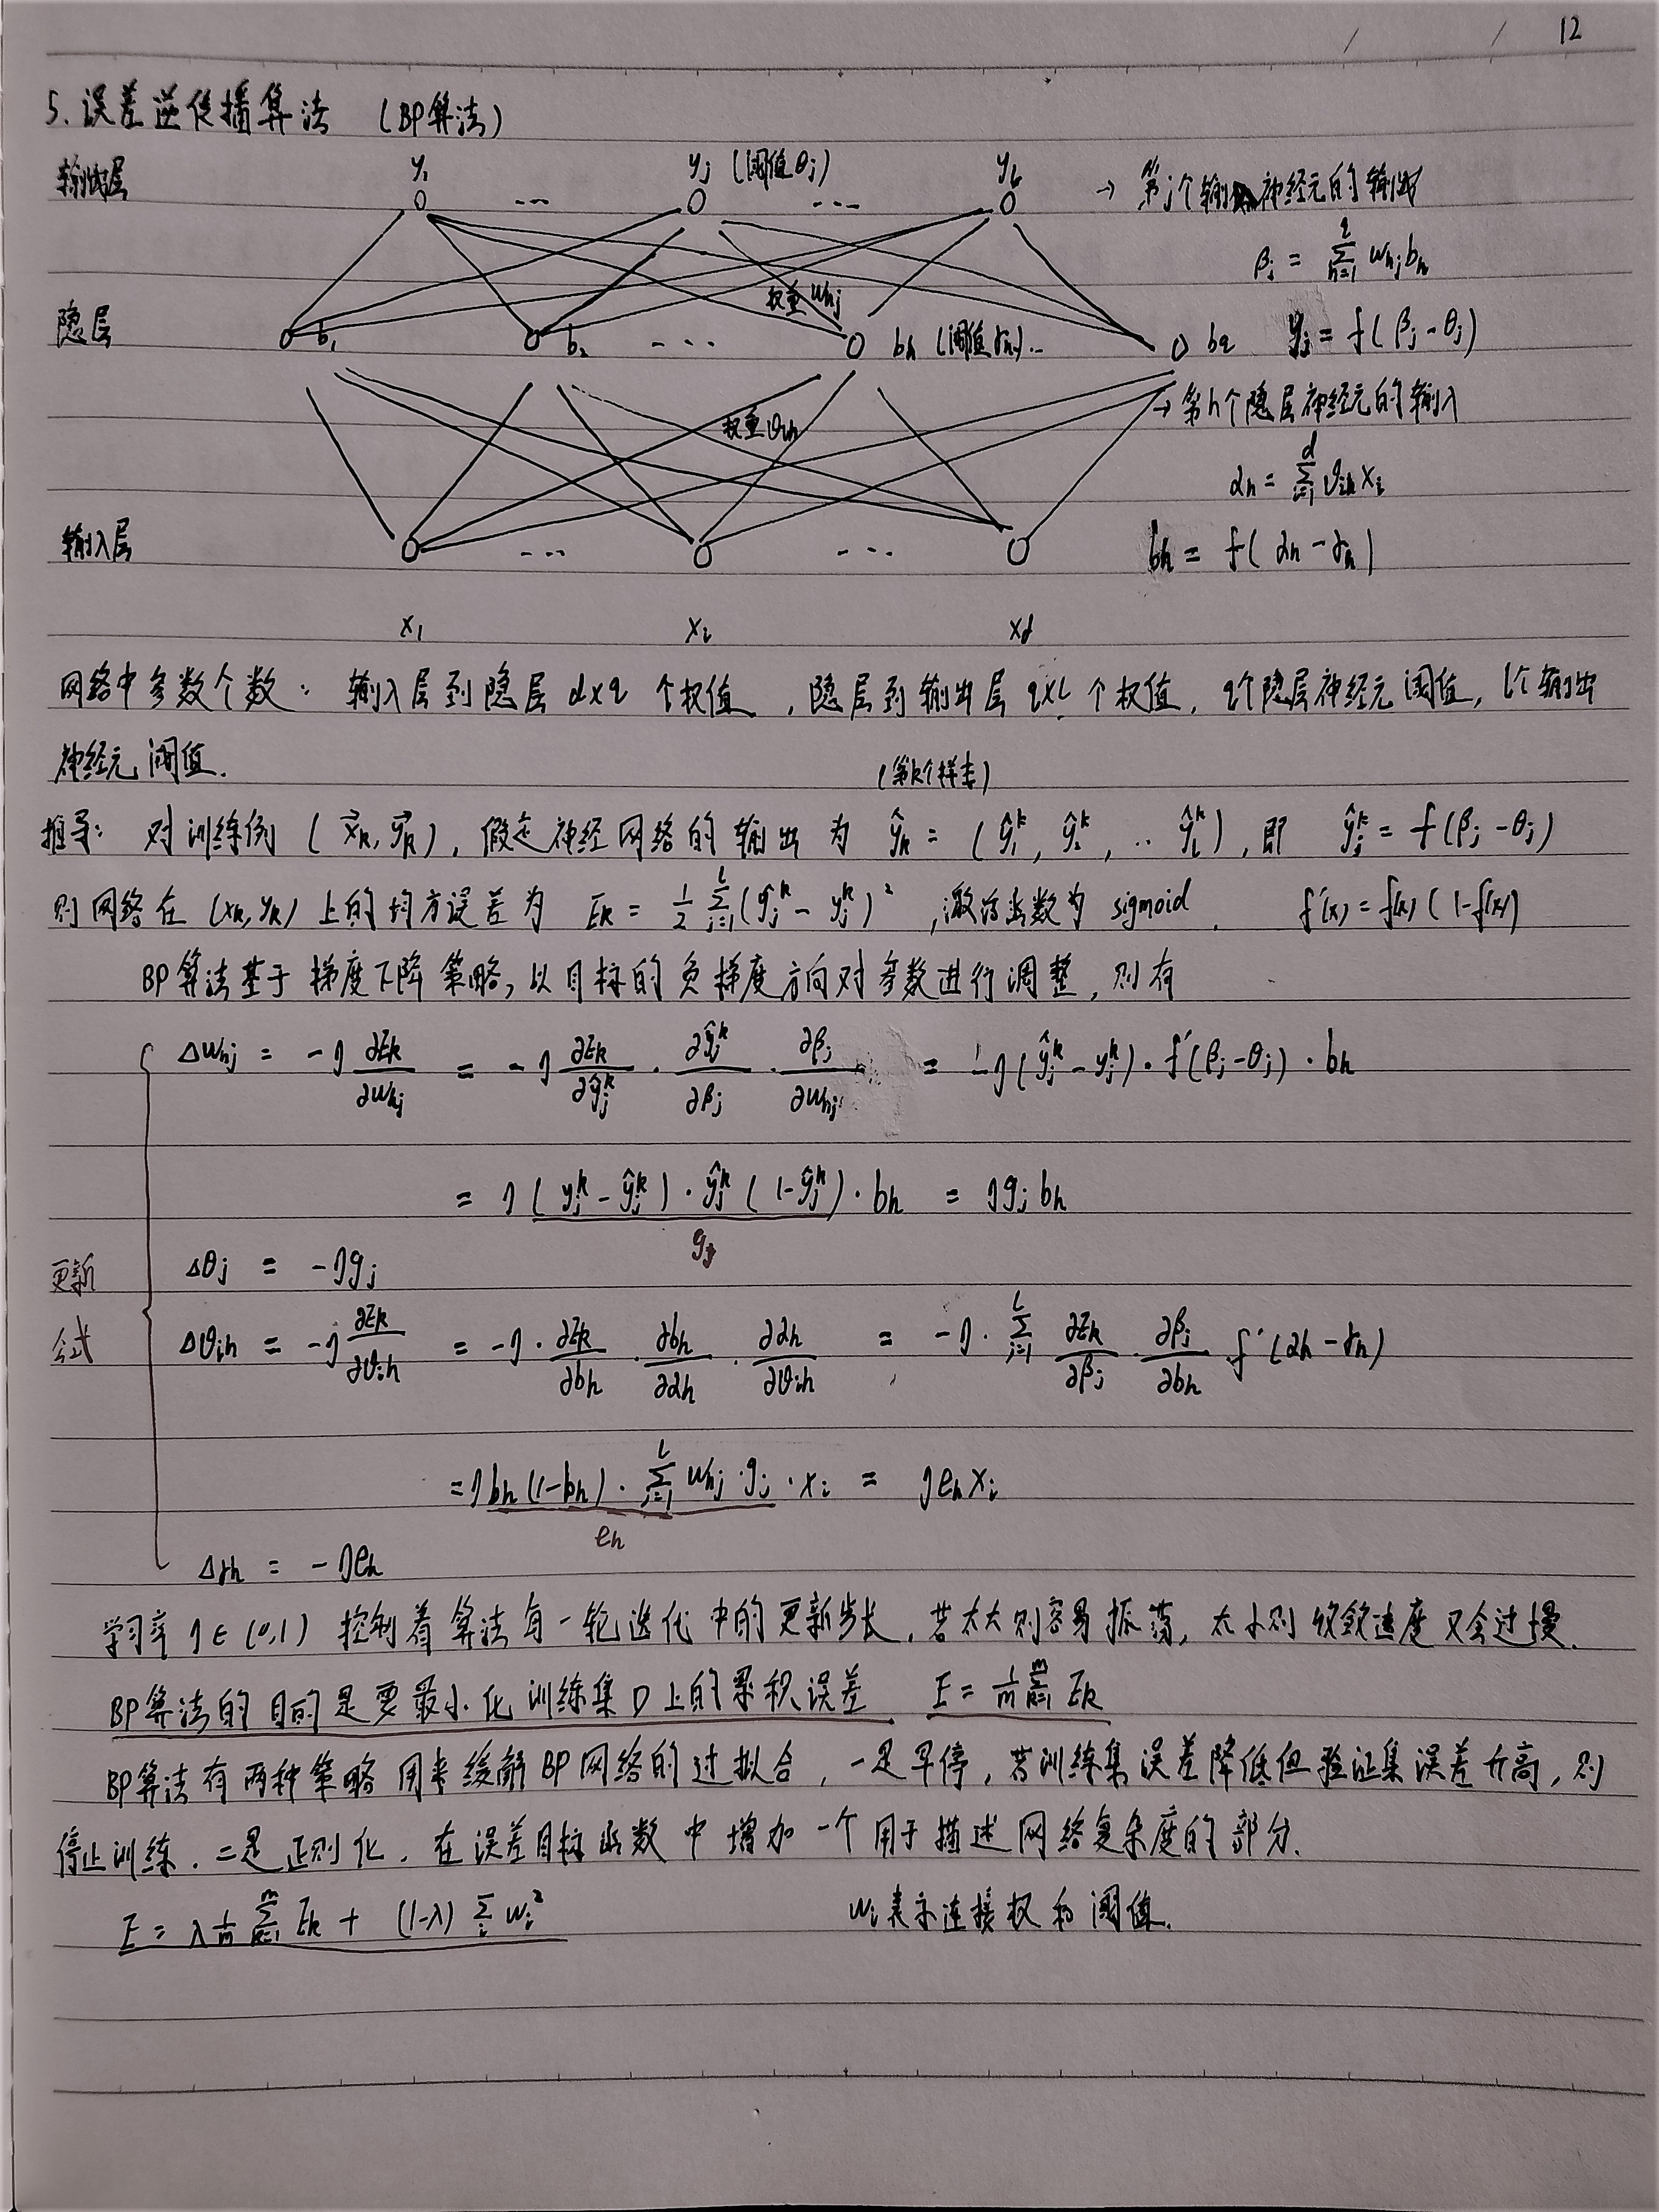 12
5. 误差逆传播算法 (BP算法)
输出层 y₁ yⱼ (阈值θⱼ) y_l → 第j个输出神经元的输出
--- ---
βⱼ = Σ_{h=1}^{q} w_{hj} b_h
权重 w_{hj}
隐层 b₁ b₂ --- b_h (阈值γ_h) .. b_q yⱼ = f(βⱼ - θⱼ)
→ 第h个隐层神经元的输入
权重 v_{ih}
α_h = Σ_{i=1}^{d} v_{ih} x_i
输入层 --- --- b_h = f(α_h - γ_h)
x₁ x_i x_d
网络中参数个数: 输入层到隐层 d×q 个权值, 隐层到输出层 q×l 个权值, q个隐层神经元阈值, l个输出
神经元阈值.
(第k个样本)
推导: 对训练例 (x⃗_k, y⃗_k), 假定神经网络的输出为 ŷ_k = (ŷ₁^k, ŷ₂^k, .. ŷ_l^k), 即 ŷⱼ^k = f(βⱼ - θⱼ)
则网络在 (x_k, y_k) 上的均方误差为 E_k = ½ Σ_{j=1}^{l} (ŷⱼ^k - yⱼ^k)², 激活函数为 sigmoid. f'(x) = f(x)(1-f(x))
BP算法基于梯度下降策略, 以目标的负梯度方向对参数进行调整, 则有
Δw_{hj} = -η ∂E_k/∂w_{hj} = -η ∂E_k/∂ŷⱼ^k · ∂ŷⱼ^k/∂βⱼ · ∂βⱼ/∂w_{hj} = -η(ŷⱼ^k - yⱼ^k) · f'(βⱼ - θⱼ) · b_h
= η (yⱼ^k - ŷⱼ^k) · ŷⱼ^k (1-ŷⱼ^k) · b_h = ηgⱼ b_h
gⱼ
更新 Δθⱼ = -ηgⱼ
公式 Δv_{ih} = -η ∂E_k/∂v_{ih} = -η · ∂E_k/∂b_h · ∂b_h/∂α_h · ∂α_h/∂v_{ih} = -η · Σ_{j=1}^{l} ∂E_k/∂βⱼ · ∂βⱼ/∂b_h · f'(α_h - γ_h)
= ηb_h(1-b_h) · Σ_{j=1}^{l} w_{hj} · gⱼ · x_i = ηe_h x_i
e_h
Δγ_h = -ηe_h
学习率 η∈(0,1) 控制着算法每一轮迭代中的更新步长, 若太大则容易振荡, 太小则收敛速度又会过慢.
BP算法的目的是要最小化训练集D上的累积误差 E = 1/m Σ_{k=1}^{m} E_k
BP算法有两种策略用来缓解BP网络的过拟合, 一是早停, 若训练集误差降低但验证集误差升高, 则
停止训练. 二是正则化, 在误差目标函数中增加一个用于描述网络复杂度的部分.
E = λ 1/m Σ_{k=1}^{m} E_k + (1-λ) Σ_i w_i² w_i表示连接权和阈值.